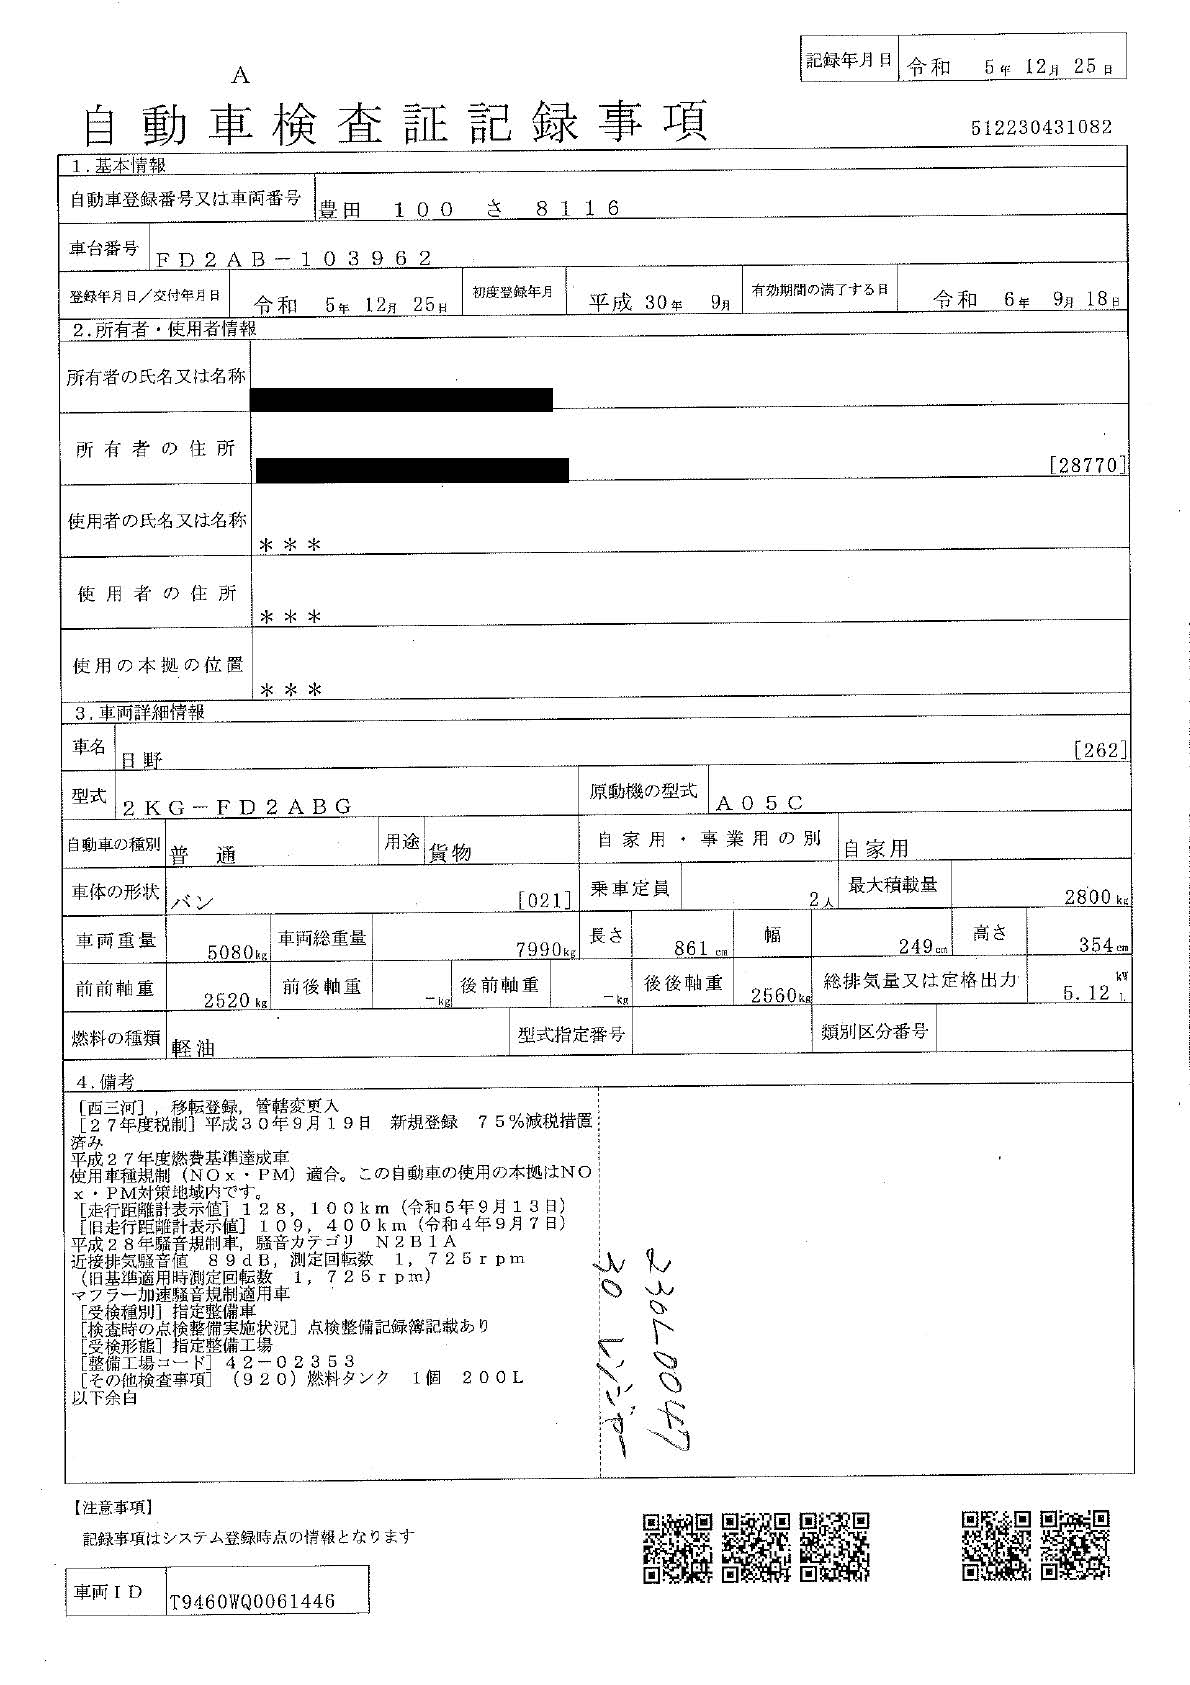 記録年月日 令和 5年 12月 25日
A
自動車検査証記録事項
512230431082
1.基本情報
自動車登録番号又は車両番号 豊田 100 さ 8116
車台番号 FD2AB-103962
登録年月日/交付年月日 令和 5年 12月 25日 初度登録年月 平成 30年 9月 有効期間の満了する日 令和 6年 9月 18日
2.所有者・使用者情報
所有者の氏名又は名称
所有者の住所 [28770]
使用者の氏名又は名称 ***
使用者の住所 ***
使用の本拠の位置 ***
3.車両詳細情報
車名 日野 [262]
型式 2KG-FD2ABG 原動機の型式 A05C
自動車の種別 普通 用途 貨物 自家用・事業用の別 自家用
車体の形状 バン [021] 乗車定員 2人 最大積載量 2800kg
車両重量 5080kg 車両総重量 7990kg 長さ 861cm 幅 249cm 高さ 354cm
前前軸重 2520kg 前後軸重 -kg 後前軸重 -kg 後後軸重 2560kg 総排気量又は定格出力 5.12 kW L
燃料の種類 軽油 型式指定番号 類別区分番号
4.備考
[西三河],移転登録,管轄変更入
[27年度税制]平成30年9月19日 新規登録 75%減税措置
済み
平成27年度燃費基準達成車
使用車種規制(NOx・PM)適合。この自動車の使用の本拠はNO
x・PM対策地域内です。
[走行距離計表示値]128,100km(令和5年9月13日)
[旧走行距離計表示値]109,400km(令和4年9月7日)
平成28年騒音規制車,騒音カテゴリ N2B1A
近接排気騒音値 89dB,測定回転数 1,725rpm
(旧基準適用時測定回転数 1,725rpm)
マフラー加速騒音規制適用車
[受検種別]指定整備車
[検査時の点検整備実施状況]点検整備記録簿記載あり
[受検形態]指定整備工場
[整備工場コード]42-02353
[その他検査事項](920)燃料タンク 1個 200L
以下余白
230L0047
30 レンジャー
【注意事項】
記録事項はシステム登録時点の情報となります
車両ID T9460WQ0061446